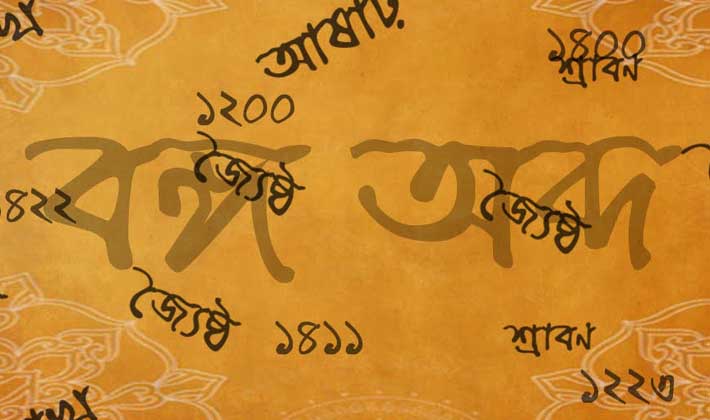 আষাঢ়
১৪০০
শ্রাবন
১২০০
বঙ্গ অব্দ
জ্যৈষ্ঠ
জ্যৈষ্ঠ
১৪২২
জ্যৈষ্ঠ
১৪১১
শ্রাবন
১২২৩